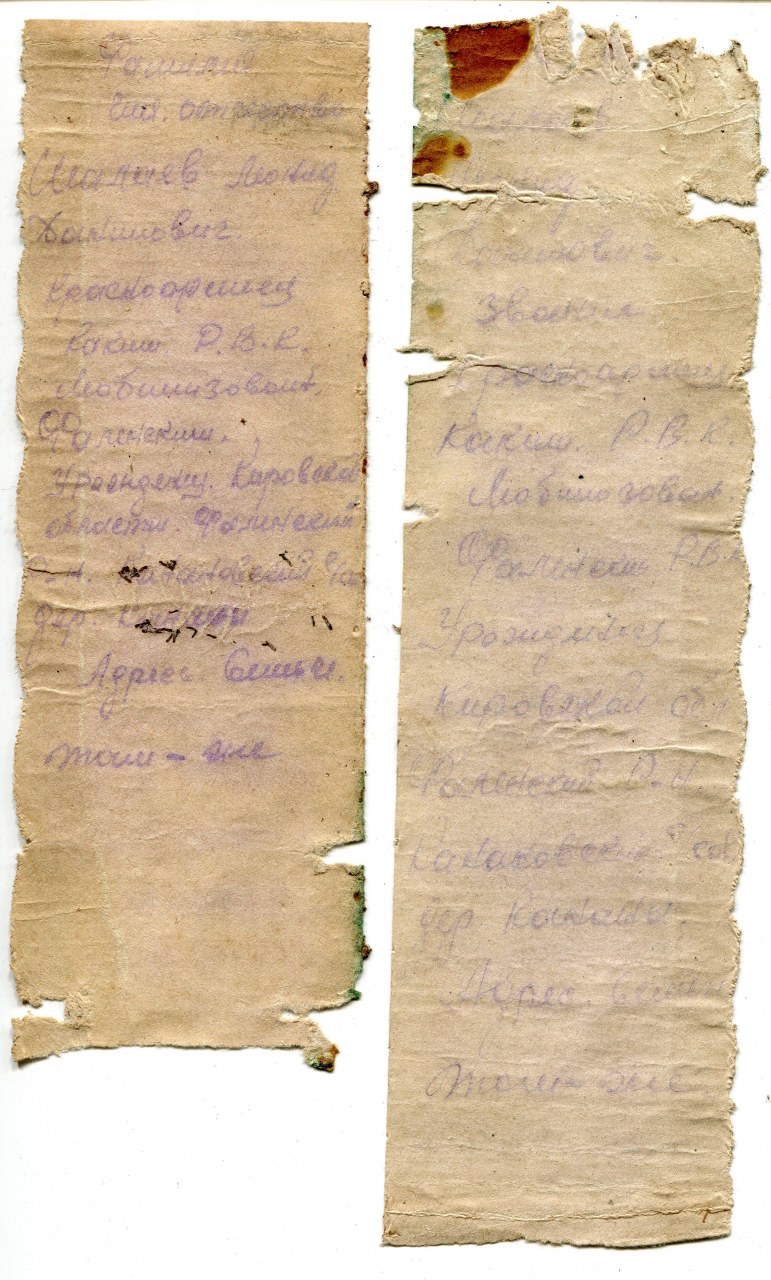 Фамилия
имя. отчество
Шалаев Леонид
Данилович.
Красноармеец
Каким Р.В.К.
Мобилизован.
Фаленским.
Уроендец. Кировской
области. Фаленский
Р-Н. Канаковский
дер. Канаки
Адрес Семьи.
там-же
Леонид
Данилович.
Звания
Красноармеец
Каким. Р.В.К.
Мобилизован.
Фаленским Р.В.К
Урожденец
Кировской обл
Фаленский Р-Н.
Канаковский сов
дер Канаки.
Адрес Семьи
там же